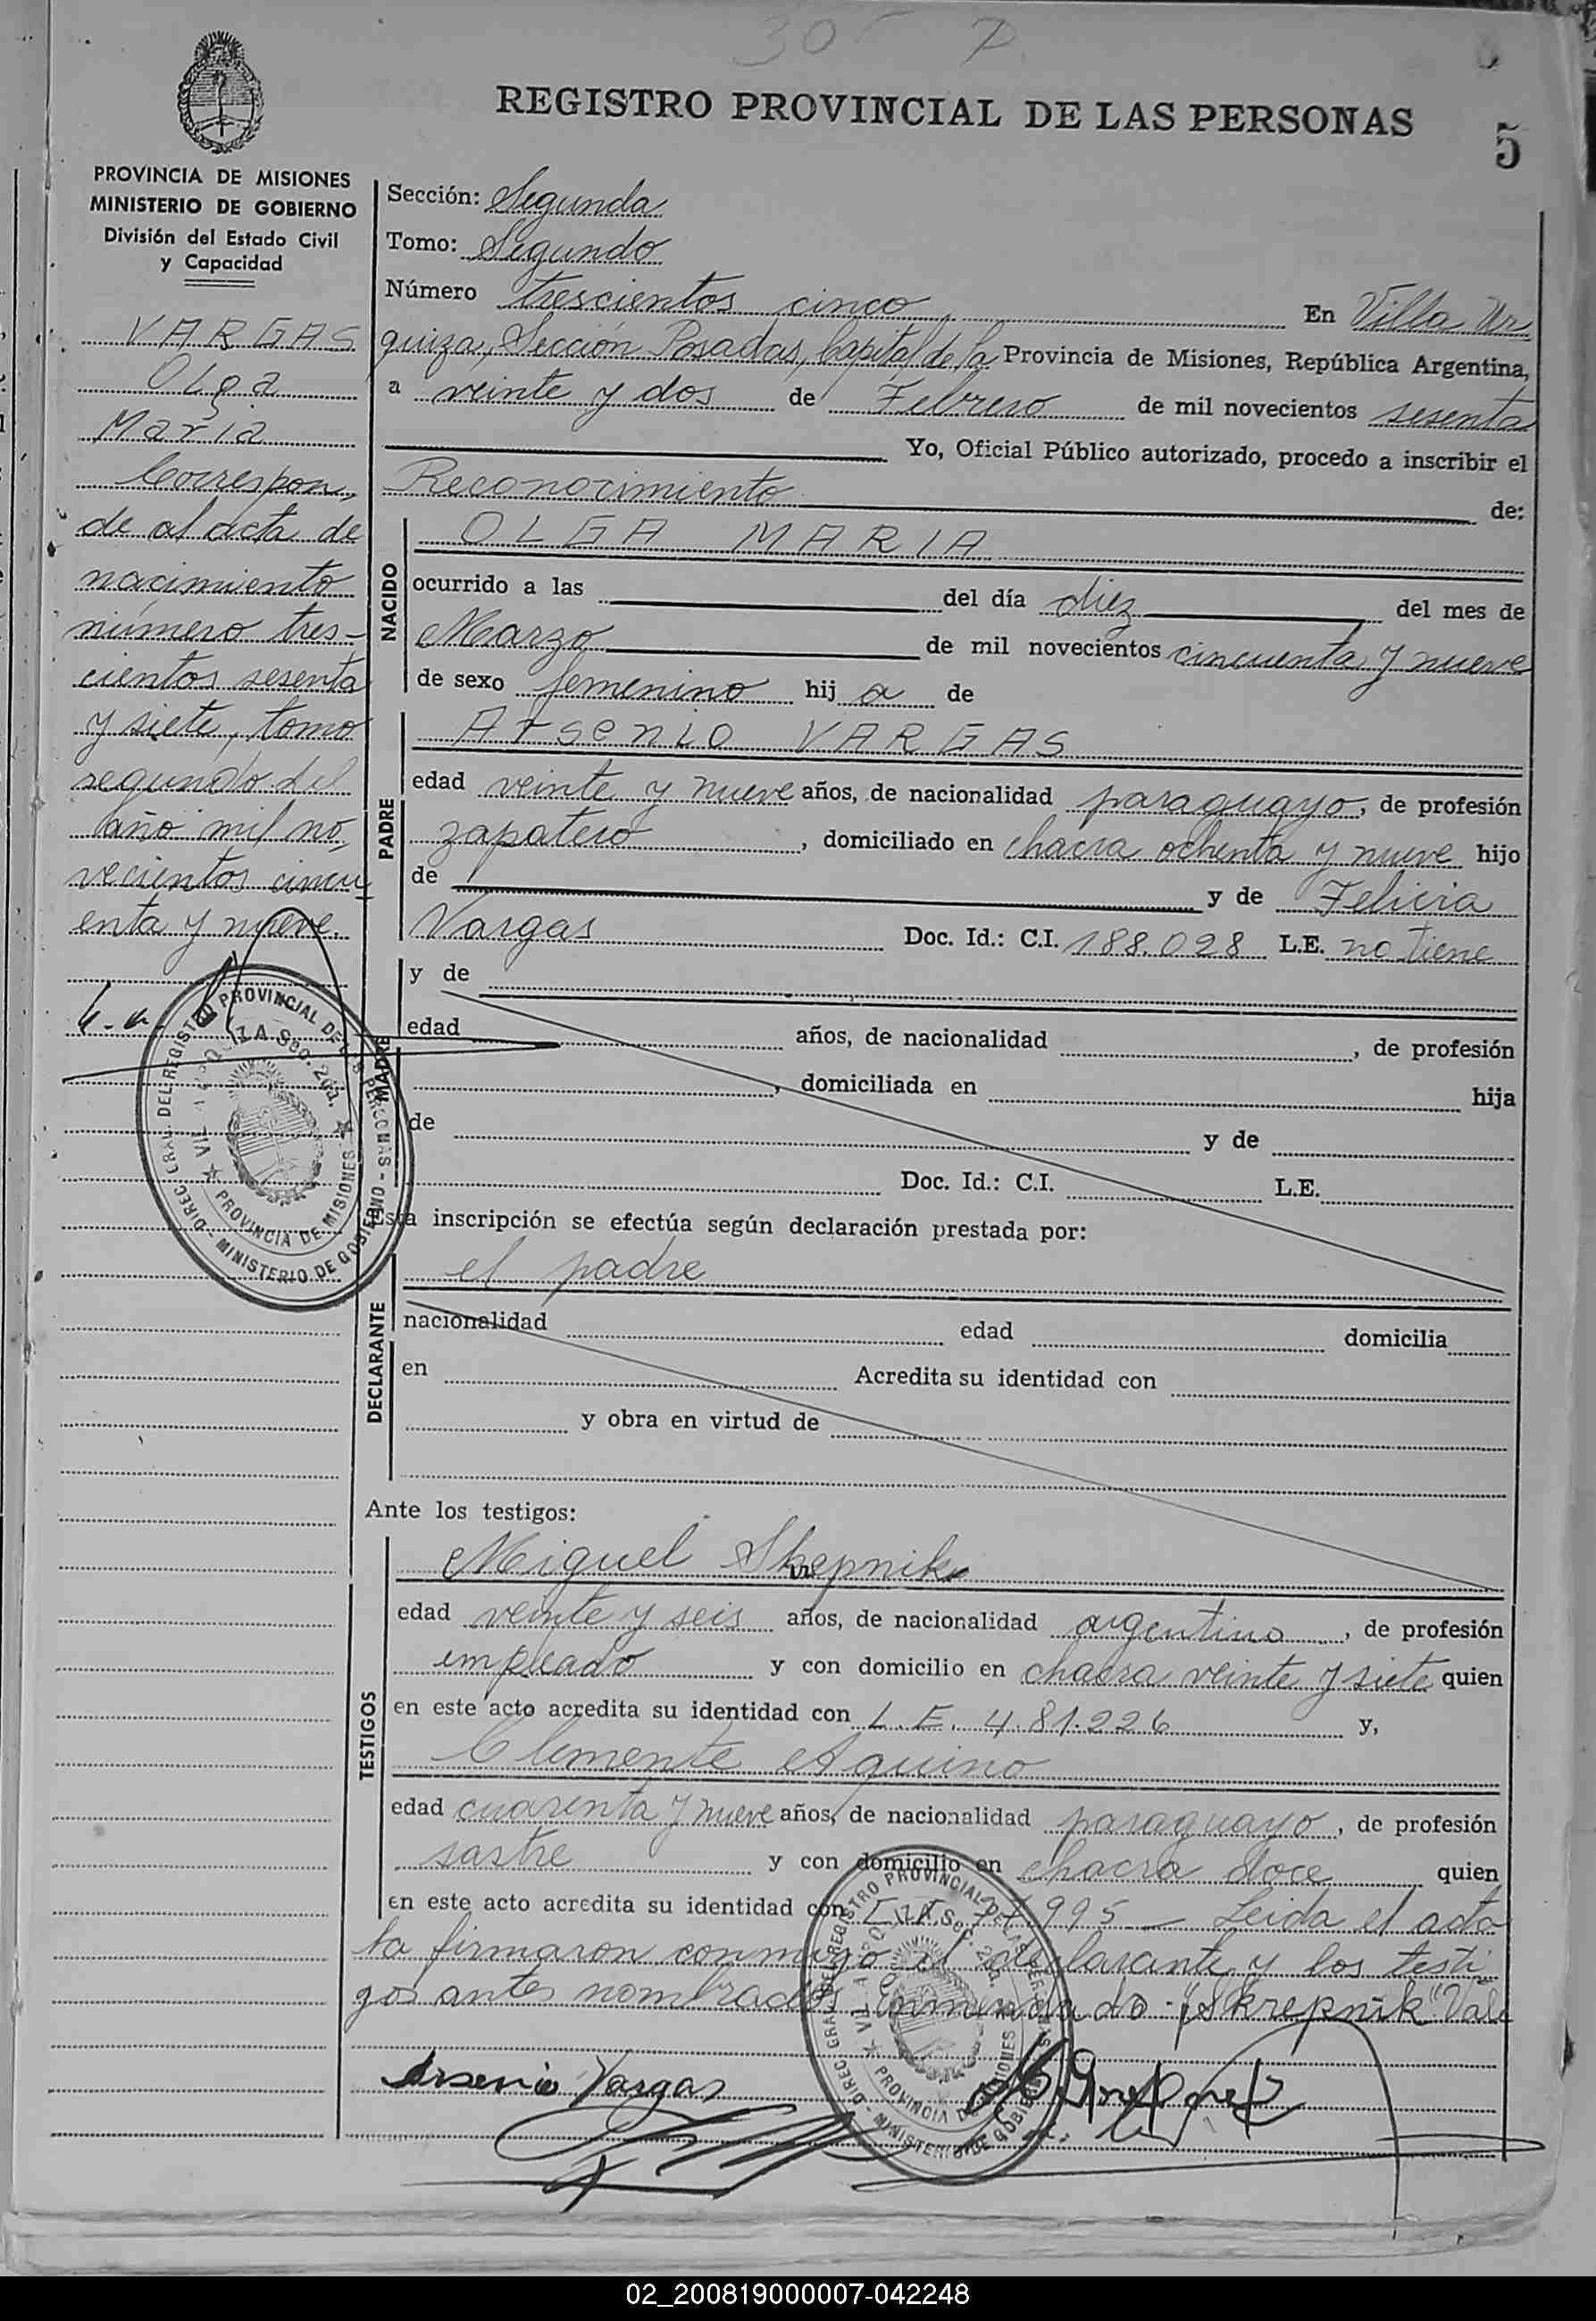 305
REGISTRO PROVINCIAL DE LAS PERSONAS
5
PROVINCIA DE MISIONES
MINISTERIO DE GOBIERNO
División del Estado Civil
y Capacidad
VARGAS
Olga
María
Correspon-
de al acta de
nacimiento
número tres-
cientos sesenta
y siete, tomo
segundo del
año mil no-
vecientos cincu
enta y nueve.
Sección: Segunda
Tomo: Segundo
Número trescientos cinco En Villa Ur
quiza, Sección Posadas, Capital de la Provincia de Misiones, República Argentina,
a veinte y dos de Febrero de mil novecientos sesenta
Yo, Oficial Público autorizado, procedo a inscribir el
Reconocimiento de:
NACIDO
OLGA MARIA
ocurrido a las del día diez del mes de
Marzo de mil novecientos cincuenta y nueve
de sexo femenino hij a de
PADRE
Arsenio VARGAS
edad veinte y nueve años, de nacionalidad paraguayo, de profesión
zapatero, domiciliado en chacra ochenta y nueve hijo
de y de Felicia
Vargas Doc. Id.: C.I. 188.028 L.E. no tiene
MADRE
y de
edad años, de nacionalidad , de profesión
, domiciliada en hija
de y de
Doc. Id.: C.I. L.E.
Esta inscripción se efectúa según declaración prestada por:
DECLARANTE
el padre
nacionalidad edad domicilia
en Acredita su identidad con
y obra en virtud de
Ante los testigos:
TESTIGOS
Miguel Skrepnik
edad veinte y seis años, de nacionalidad argentino, de profesión
empleado y con domicilio en chacra veinte y siete quien
en este acto acredita su identidad con L.E. 4.81.226 y,
Clemente Aquino
edad cuarenta y nueve años, de nacionalidad paraguayo, de profesión
sastre y con domicilio en chacra doce quien
en este acto acredita su identidad con 995 Leida el acta
la firmaron conmigo el declarante y los testi
gos antes nombrados. Enmendado: "Skrepnik" Vale
Arsenio Vargas
DIREC. GRAL. DEL REGISTRO PROVINCIAL DE LAS PERSONAS - MINISTERIO DE GOBIERNO
VILLA URQUIZA Sec. 2da. PROVINCIA DE MISIONES
DIREC. GRAL. DEL REGISTRO PROVINCIAL DE LAS PERSONAS - MINISTERIO DE GOBIERNO
VILLA URQUIZA Sec. 2da. PROVINCIA DE MISIONES
02_200819000007-042248